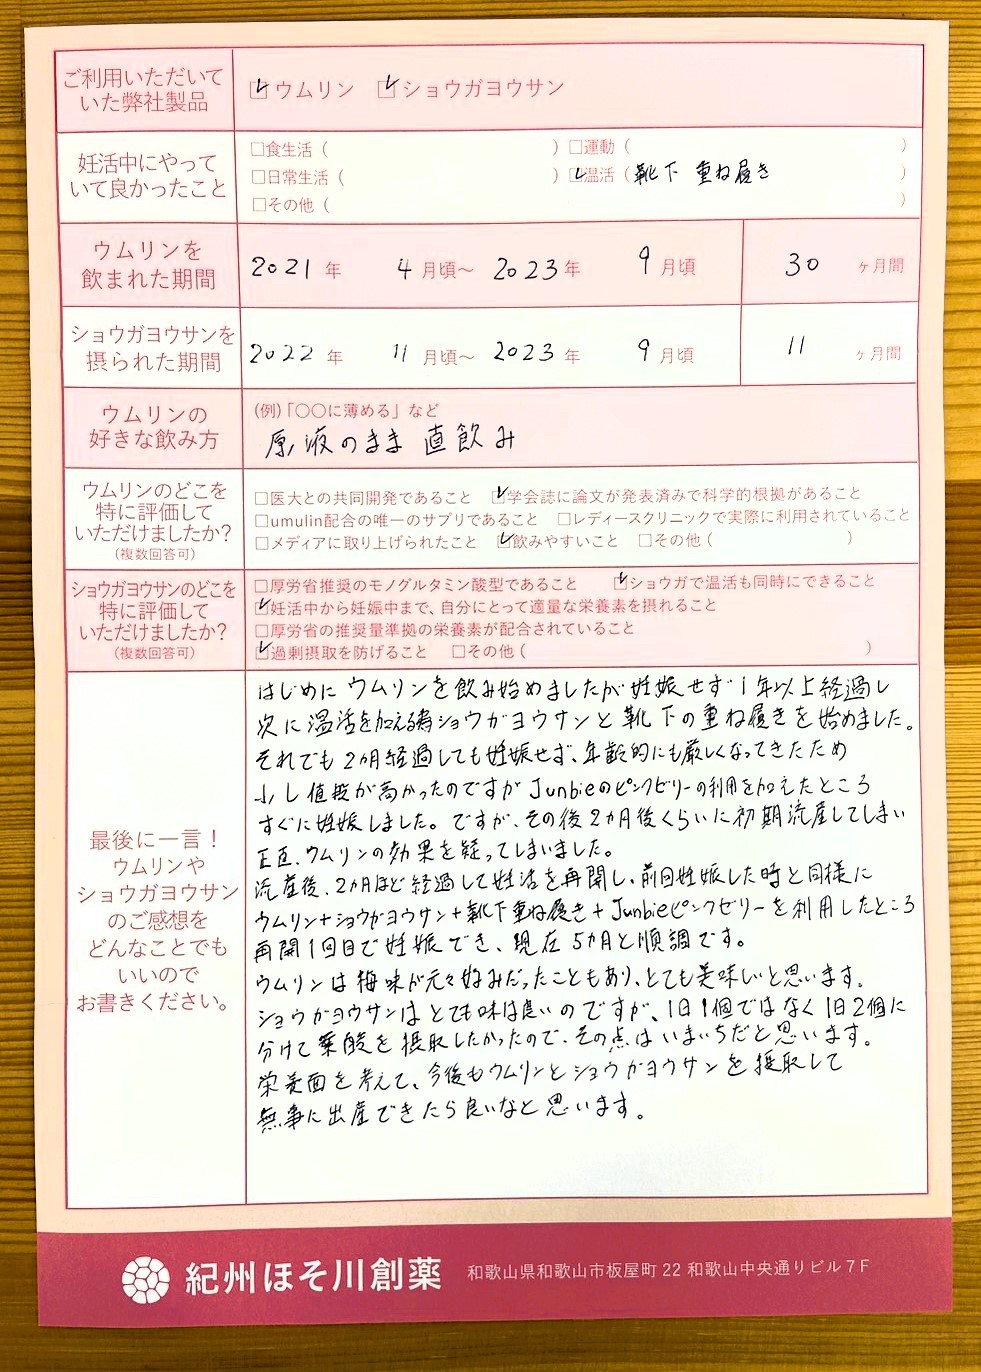 ご利用いただいて
いた弊社製品
☑ウムリン ☑ショウガヨウサン
妊活中にやって
いて良かったこと
□食生活 ( ) □運動 ( )
□日常生活 ( ) ☑温活 (靴下 重ね履き )
□その他 ( )
ウムリンを
飲まれた期間
2021年 4月頃〜2023年 9月頃 30ヶ月間
ショウガヨウサンを
摂られた期間
2022年 11月頃〜2023年 9月頃 11ヶ月間
ウムリンの
好きな飲み方
(例)「〇〇に薄める」など
原液のまま直飲み
ウムリンのどこを
特に評価して
いただけましたか?
(複数回答可)
□医大との共同開発であること ☑学会誌に論文が発表済みで科学的根拠があること
□umulin配合の唯一のサプリであること □レディースクリニックで実際に利用されていること
□メディアに取り上げられたこと ☑飲みやすいこと □その他 ( )
ショウガヨウサンのどこを
特に評価して
いただけましたか?
(複数回答可)
□厚労省推奨のモノグルタミン酸型であること ☑ショウガで温活も同時にできること
☑妊活中から妊娠中まで、自分にとって適量な栄養素を摂れること
□厚労省の推奨量準拠の栄養素が配合されていること
☑過剰摂取を防げること □その他 ( )
最後に一言!
ウムリンや
ショウガヨウサン
のご感想を
どんなことでも
いいので
お書きください。
はじめに ウムリンを飲み始めましたが妊娠せず1年以上経過し
次に温活を加える為ショウガヨウサンと靴下の重ね履きを始めました。
それでも2カ月経過しても妊娠せず、年齢的にも厳しくなってきたため
少し値段が高かったのですがJunbieのピンクゼリーの利用を加えたところ
すぐに妊娠しました。ですが、その後2カ月後くらいに初期流産してしまい
正直、ウムリンの効果を疑ってしまいました。
流産後、2カ月ほど経過して妊活を再開し、前回妊娠した時と同様に
ウムリン+ショウガヨウサン+靴下重ね履き+Junbieピンクゼリーを利用したところ
再開1回目で妊娠でき、現在5カ月と順調です。
ウムリンは梅味が元々好みだったこともあり、とても美味しいと思います。
ショウガヨウサンはとても味は良いのですが、1日1個ではなく1日2個に
分けて葉酸を摂取したかったので、その点はいまいちだと思います。
栄養面を考えて、今後もウムリンとショウガヨウサンを摂取して
無事に出産できたら良いなと思います。
紀州ほそ川創薬 和歌山県和歌山市板屋町22 和歌山中央通りビル7F